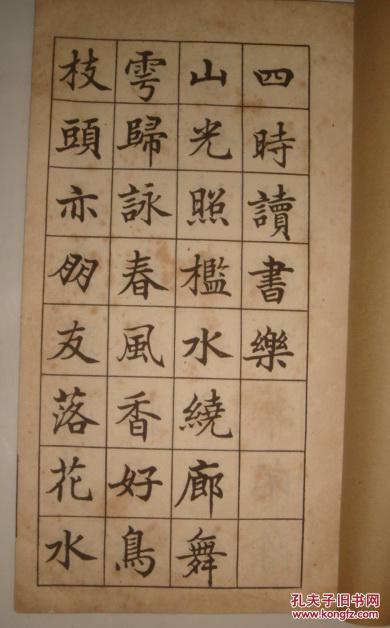 四時讀書樂
山光照檻水繞廊舞
雩歸詠春風香好鳥
枝頭亦朋友落花水
孔夫子旧书网